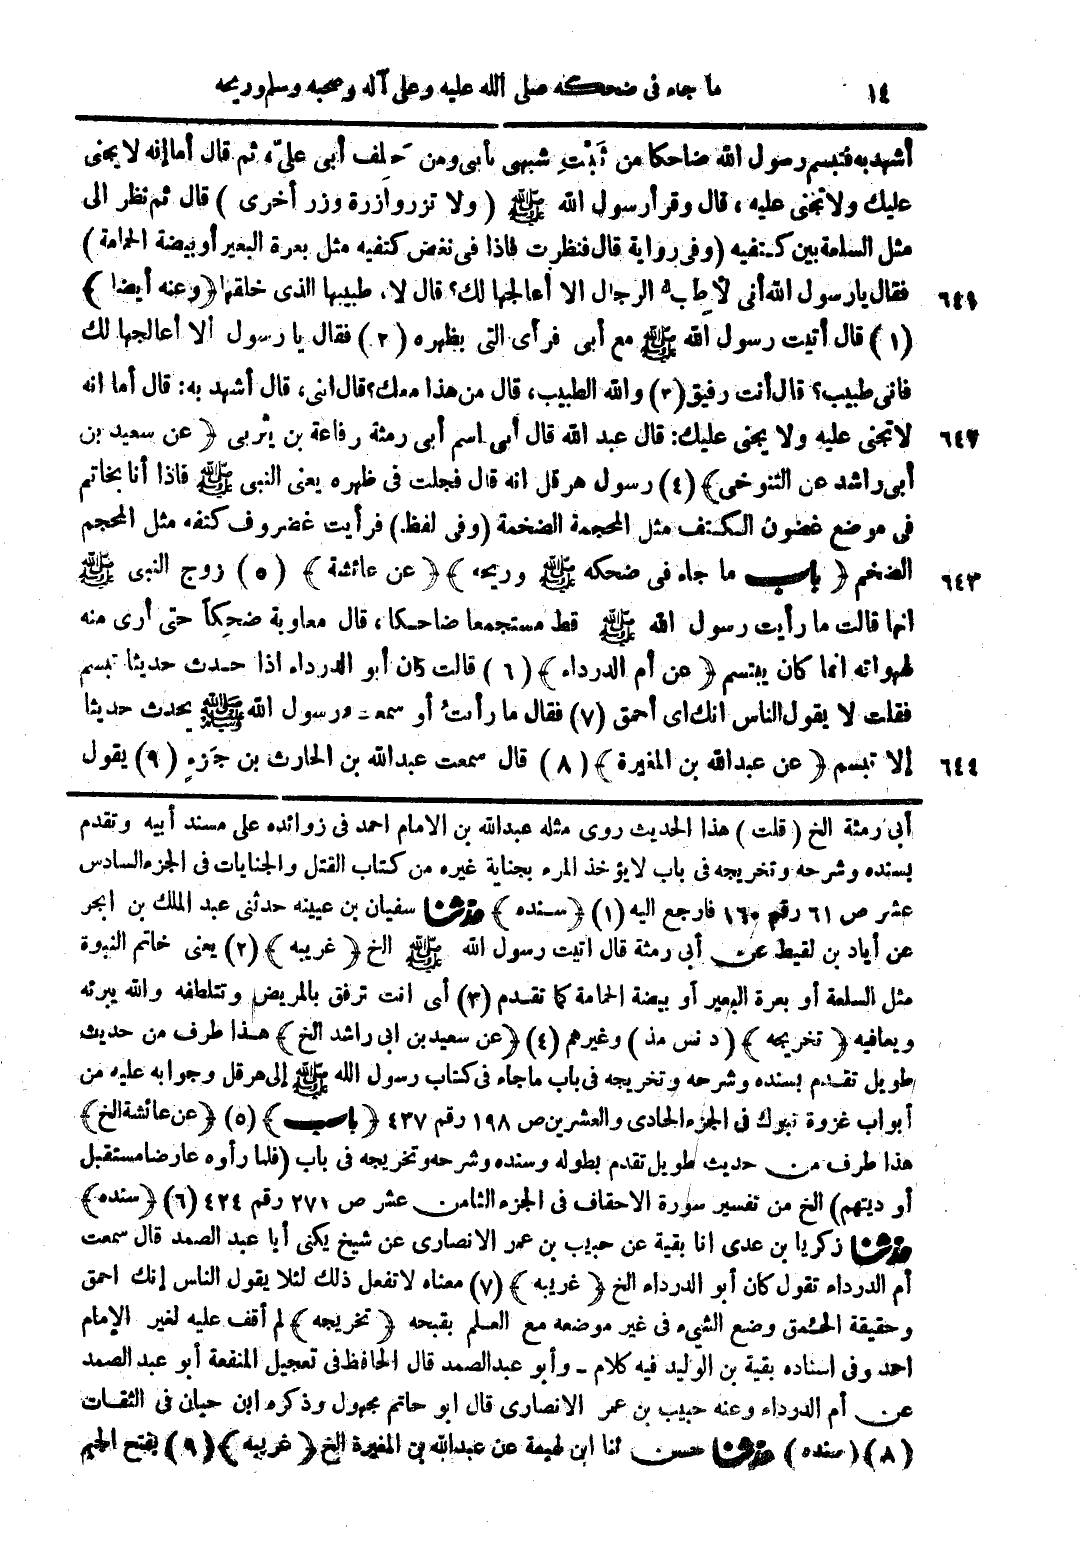 ١٤ ما جاء في ضحكه صلى الله عليه وعلى آله وصحبه وسلم وريحه
أشهد به فتبسم رسول الله ضاحكا من ثَبْتِ شبهي بأبي ومن حَلِف أبي عليّ، ثم قال أما إنه لا يجنى
عليك ولا تجنى عليه، قال وقرأ رسول الله ﷺ ( ولا تزر وازرة وزر أخرى ) قال ثم نظر الى
مثل السلعة بين كتفيه (وفى رواية قال فنظرت فاذا فى نغض كتفيه مثل بعرة البعير أو بيضة الحمامة)
فقال يا رسول الله أنى لأطب الرجال الا أعالجها لك؟ قال لا، طبيبها الذى خلقها ﴿وعنه أيضا﴾ ٦٤١
(١) قال أتيت رسول الله ﷺ مع أبى فرأى التى بظهره (٢) فقال يا رسول ألا أعالجها لك
فانى طبيب؟ قال أنت رفيق (٣) والله الطبيب، قال من هذا معك؟ قال ابنى، قال أشهد به: قال أما انه
لا تجنى عليه ولا يجنى عليك: قال عبد الله قال أبى اسم أبى رمثة رفاعة بن يثربى ﴿ عن سعيد بن ٦٤٢
أبى راشد عن التنوخى﴾ (٤) رسول هرقل انه قال فجلت فى ظهره يعنى النبى ﷺ فاذا أنا بخاتم
فى موضع غضون الكتف مثل المحجمة الضخمة (وفى لفظ) فرأيت غضروف كتفه مثل المحجم
الضخم ﴿ باب ما جاء فى ضحكه ﷺ وريحه ﴾ ﴿ عن عائشة ﴾ (٥) زوج النبى ﷺ ٦٤٣
انها قالت ما رأيت رسول الله ﷺ قط مستجمعا ضاحكا، قال معاوية ضحِكاً حتى أرى منه
لهواته انما كان يبتسم ﴿ عن أم الدرداء ﴾ (٦) قالت كان أبو الدرداء اذا حدث حديثا تبسم
فقلت لا يقول الناس انك اى أحمق (٧) فقال ما رأيتُ أو سمعت رسول الله ﷺ يحدث حديثا
إلا تبسم ﴿ عن عبدالله بن المغيرة ﴾ (٨) قال سمعت عبدالله بن الحارث بن جَزءٍ (٩) يقول ٦٤٤
أبى رمثة الخ ( قلت ) هذا الحديث روى مثله عبدالله بن الامام احمد فى زوائده على مسند أبيه وتقدم
بسنده وشرحه وتخريجه فى باب لا يؤخذ المرء بجناية غيره من كتاب القتل والجنايات فى الجزء السادس
عشر ص ٦١ رقم ١٦٠ فارجع اليه (١) ﴿ سنده ﴾ حدثنا سفيان بن عيينه حدثنى عبد الملك بن ابجر
عن أياد بن لقيط عن أبى رمثة قال اتيت رسول الله ﷺ الخ ﴿ غريبه ﴾ (٢) يعنى خاتم النبوة
مثل السلعة أو بعرة البعير أو بيضة الحمامة كما تقدم (٣) أى انت ترفق بالمريض وتتلطفه والله يبرئه
ويعافيه ﴿ تخريجه ﴾ ( د نس مذ ) وغيرهم (٤) ﴿عن سعيد بن ابى راشد الخ ﴾ هذا طرف من حديث
طويل تقدم بسنده وشرحه وتخريجه فى باب ما جاء فى كتاب رسول الله ﷺ إلى هرقل وجوابه عليه من
أبواب غزوة تبوك فى الجزء الحادى والعشرين ص ١٩٨ رقم ٤٣٧ ﴿ باب ﴾ (٥) ﴿عن عائشة الخ ﴾
هذا طرف من حديث طويل تقدم بطوله وسنده وشرحه وتخريجه فى باب (فلما رأوه عارضا مستقبل
أو ديتهم) الخ من تفسير سورة الاحقاف فى الجزء الثامن عشر ص ٢٧١ رقم ٤٢٤ (٦) ﴿سنده ﴾
حدثنا زكريا بن عدى انا بقية عن حبيب بن عمر الانصارى عن شيخ يكنى أبا عبد الصمد قال سمعت
أم الدرداء تقول كان أبو الدرداء الخ ﴿ غريبه ﴾ (٧) معناه لا تفعل ذلك لئلا يقول الناس إنك احمق
وحقيقة الحمق وضع الشىء فى غير موضعه مع العلم بقبحه ﴿ تخريجه ﴾ لم أقف عليه لغير الإمام
احمد وفى اسناده بقية بن الوليد فيه كلام ـ وأبو عبدالصمد قال الحافظ فى تعجيل المنفعة أبو عبد الصمد
عن أم الدرداء وعنه حبيب بن عمر الانصارى قال ابو حاتم مجهول وذكره ابن حبان فى الثقات
(٨) ﴿ سنده ﴾ حدثنا حسن ثنا ابن لهيعة عن عبدالله بن المغيرة الخ ﴿ غريبه ﴾ (٩) بفتح الجيم